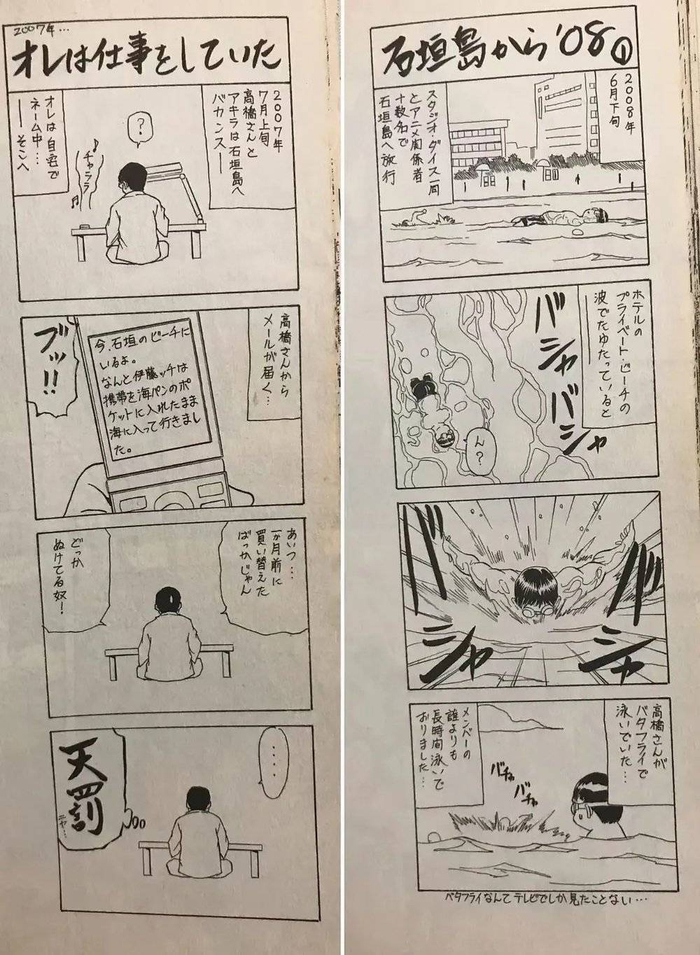 2007年…
オレは仕事をしていた
2007年
7月上旬
高橋さんと
アキラは石垣島へ
バカンス――
?
♪チャララ♪
オレは自宅で
ネーム中…
――そこへ
高橋さんから
メールが届く…
今、石垣のビーチに
いるよ。
なんと伊藤ッチは
携帯を海パンのポ
ケットに入れたまま
海に入って行きまし
た。
ブッ!!
あいつ…
一ヶ月前に
買い替えた
ばっかじゃん
どっか
ぬけてる奴!
・・・・
天罰
ニヤ…
石垣島から'08①
2008年
6月下旬
スタジオ・ダイス一同
とアニメ関係者
十数名で
石垣島へ旅行
ホテルの
プライベート・ビーチの
波でたゆたっていると
バシャ
バシャ
ん?
バ
シャ
バ
シャ
高橋さんが
バタフライで
泳いでいた…
メンバーの
誰よりも
長時間泳いで
おりました…
バチャ
バチャ
バタフライなんてテレビでしか見たことない…